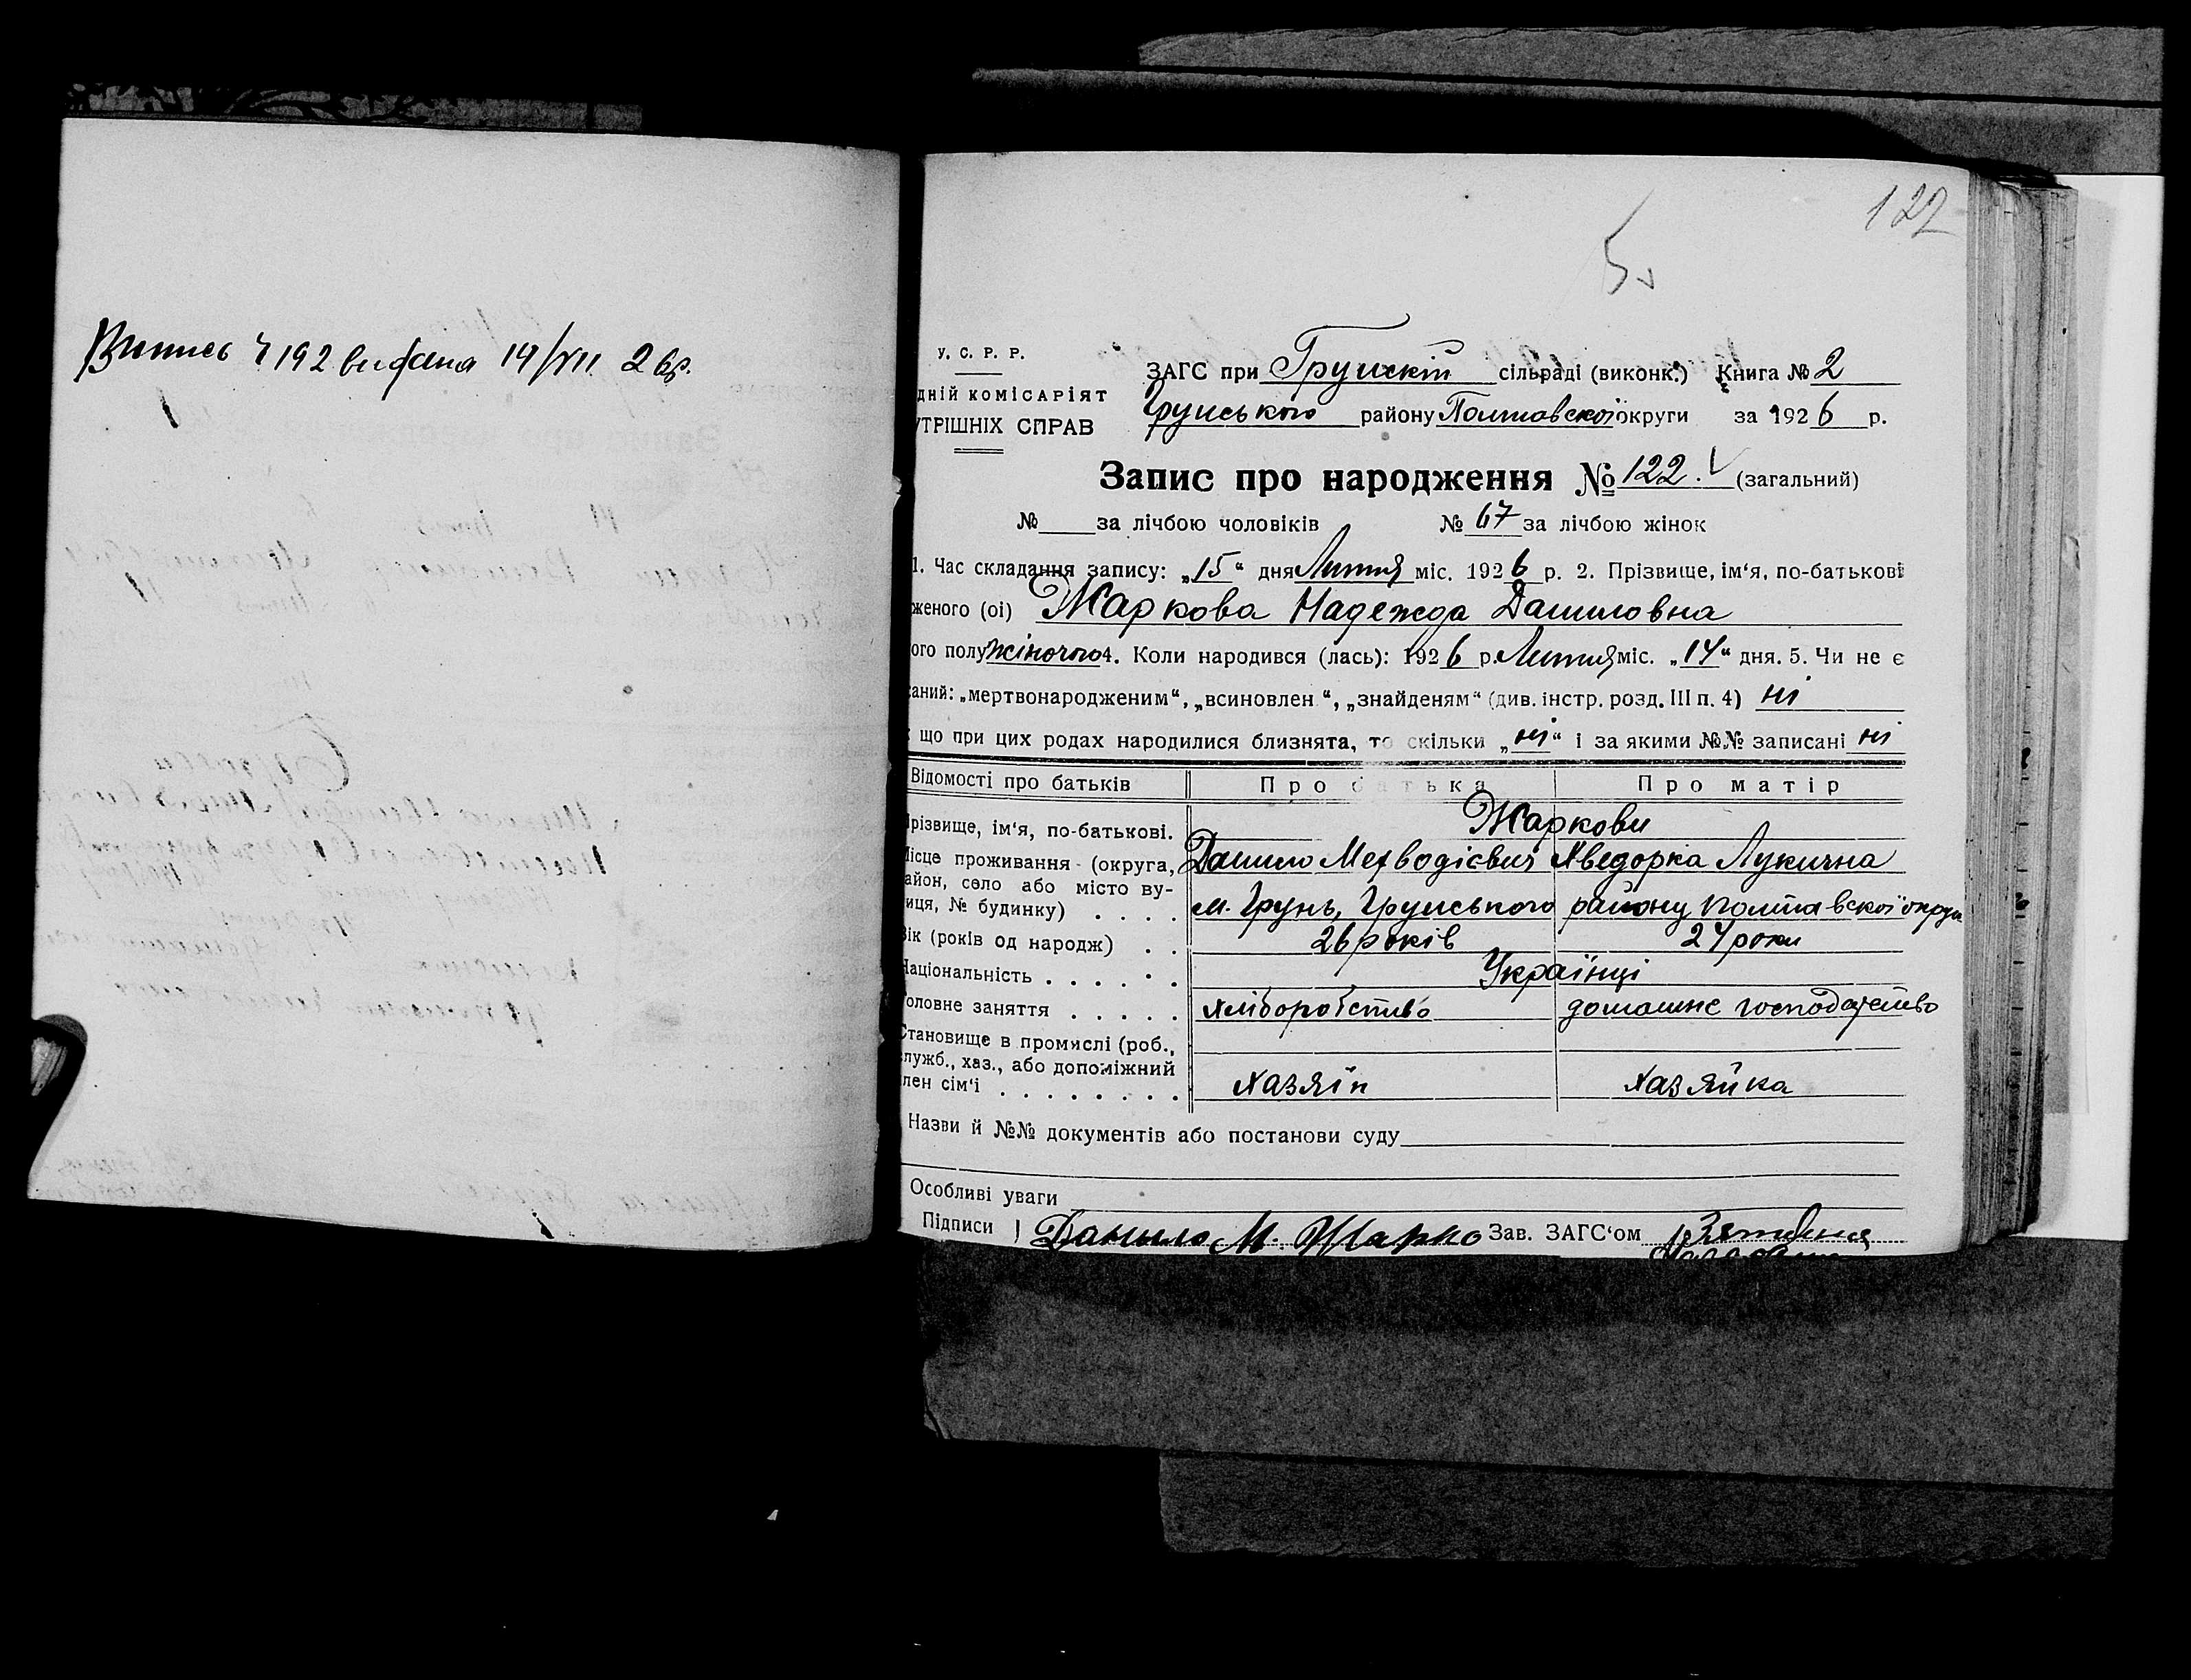 Витись Ч 192 видана 14/VII 26р.
122
5
У. С. Р. Р.
ДНІЙ КОМІСАРІЯТ
УТРІШНІХ СПРАВ
ЗАГС при Грунскій сільраді (виконк.) Книга № 2
Грунського району Полтавскої округи за 1926 р.
Запис про народження № 122. (загальний)
№ за лічбою чоловіків № 67 за лічбою жінок
1. Час складання запису: „15“ дня Липня міс. 1926 р. 2. Прізвище, ім‘я, по-батькові
женого (ої) Жаркова Надежда Даниловна
ого полу жіночого 4. Коли народився (лась): 1926 р. Липня міс. „14“ дня. 5. Чи не є
саний: „мертвонародженим“, „всиновлен “, „знайденям“ (див. інстр. розд. III п. 4) ні
що при цих родах народилися близнята, то скільки „ні“ і за якими №№ записані ні
Відомості про батьків Про батька Про матір
Прізвище, ім‘я, по-батькові. Жаркови
Місце проживання (округа, Данило Мефводієвич Хведорка Лукична
айон, село або місто ву-
иця, № будинку) . . . . м. Грунь, Грунського району Полтавської округи
Вік (років од народж) . . 26 років 24 роки
Національність . . . . . . Українці
оловне заняття . . . . . хліборобство домашнє господарство
Становище в промислі (роб.,
лужб., хаз., або допоміжний
лен сім‘ї . . . . . . . . Хазяїн Хазяйка
Назви й №№ документів або постанови суду
Особливі уваги
Підписи Данило М. Жарко Зав. ЗАГС‘ом